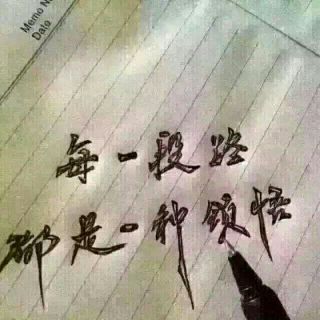 Memo N
Date
每一段路
都是一种领悟